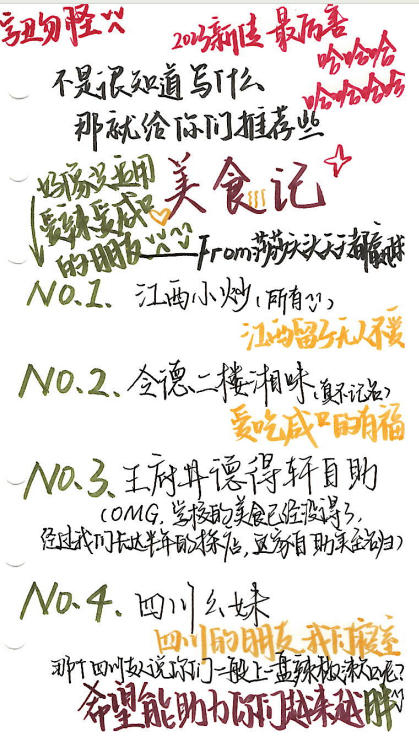 字丑勿怪
2023新佳 最厉害
哈哈哈
哈哈哈哈
不是很知道写什么
那就给你们推荐些
美食记
好像只适用
爱辣爱咸口
的朋友
From莎莎天天都
NO.1. 江西小炒(所有)
江西留子无人不爱
NO.2. 令德二楼湘味(真不记名)
爱吃咸口的有福
NO.3. 王府井德得轩自助
(OMG,学校的美食已经没得了,
经过我们长达半年的探店,这家自助实至名归)
NO.4. 四川幺妹
四川的朋友,我们寝室
那个四川女说你们一般上一盘辣椒漱口呢?
希望能助力你们越来越胖